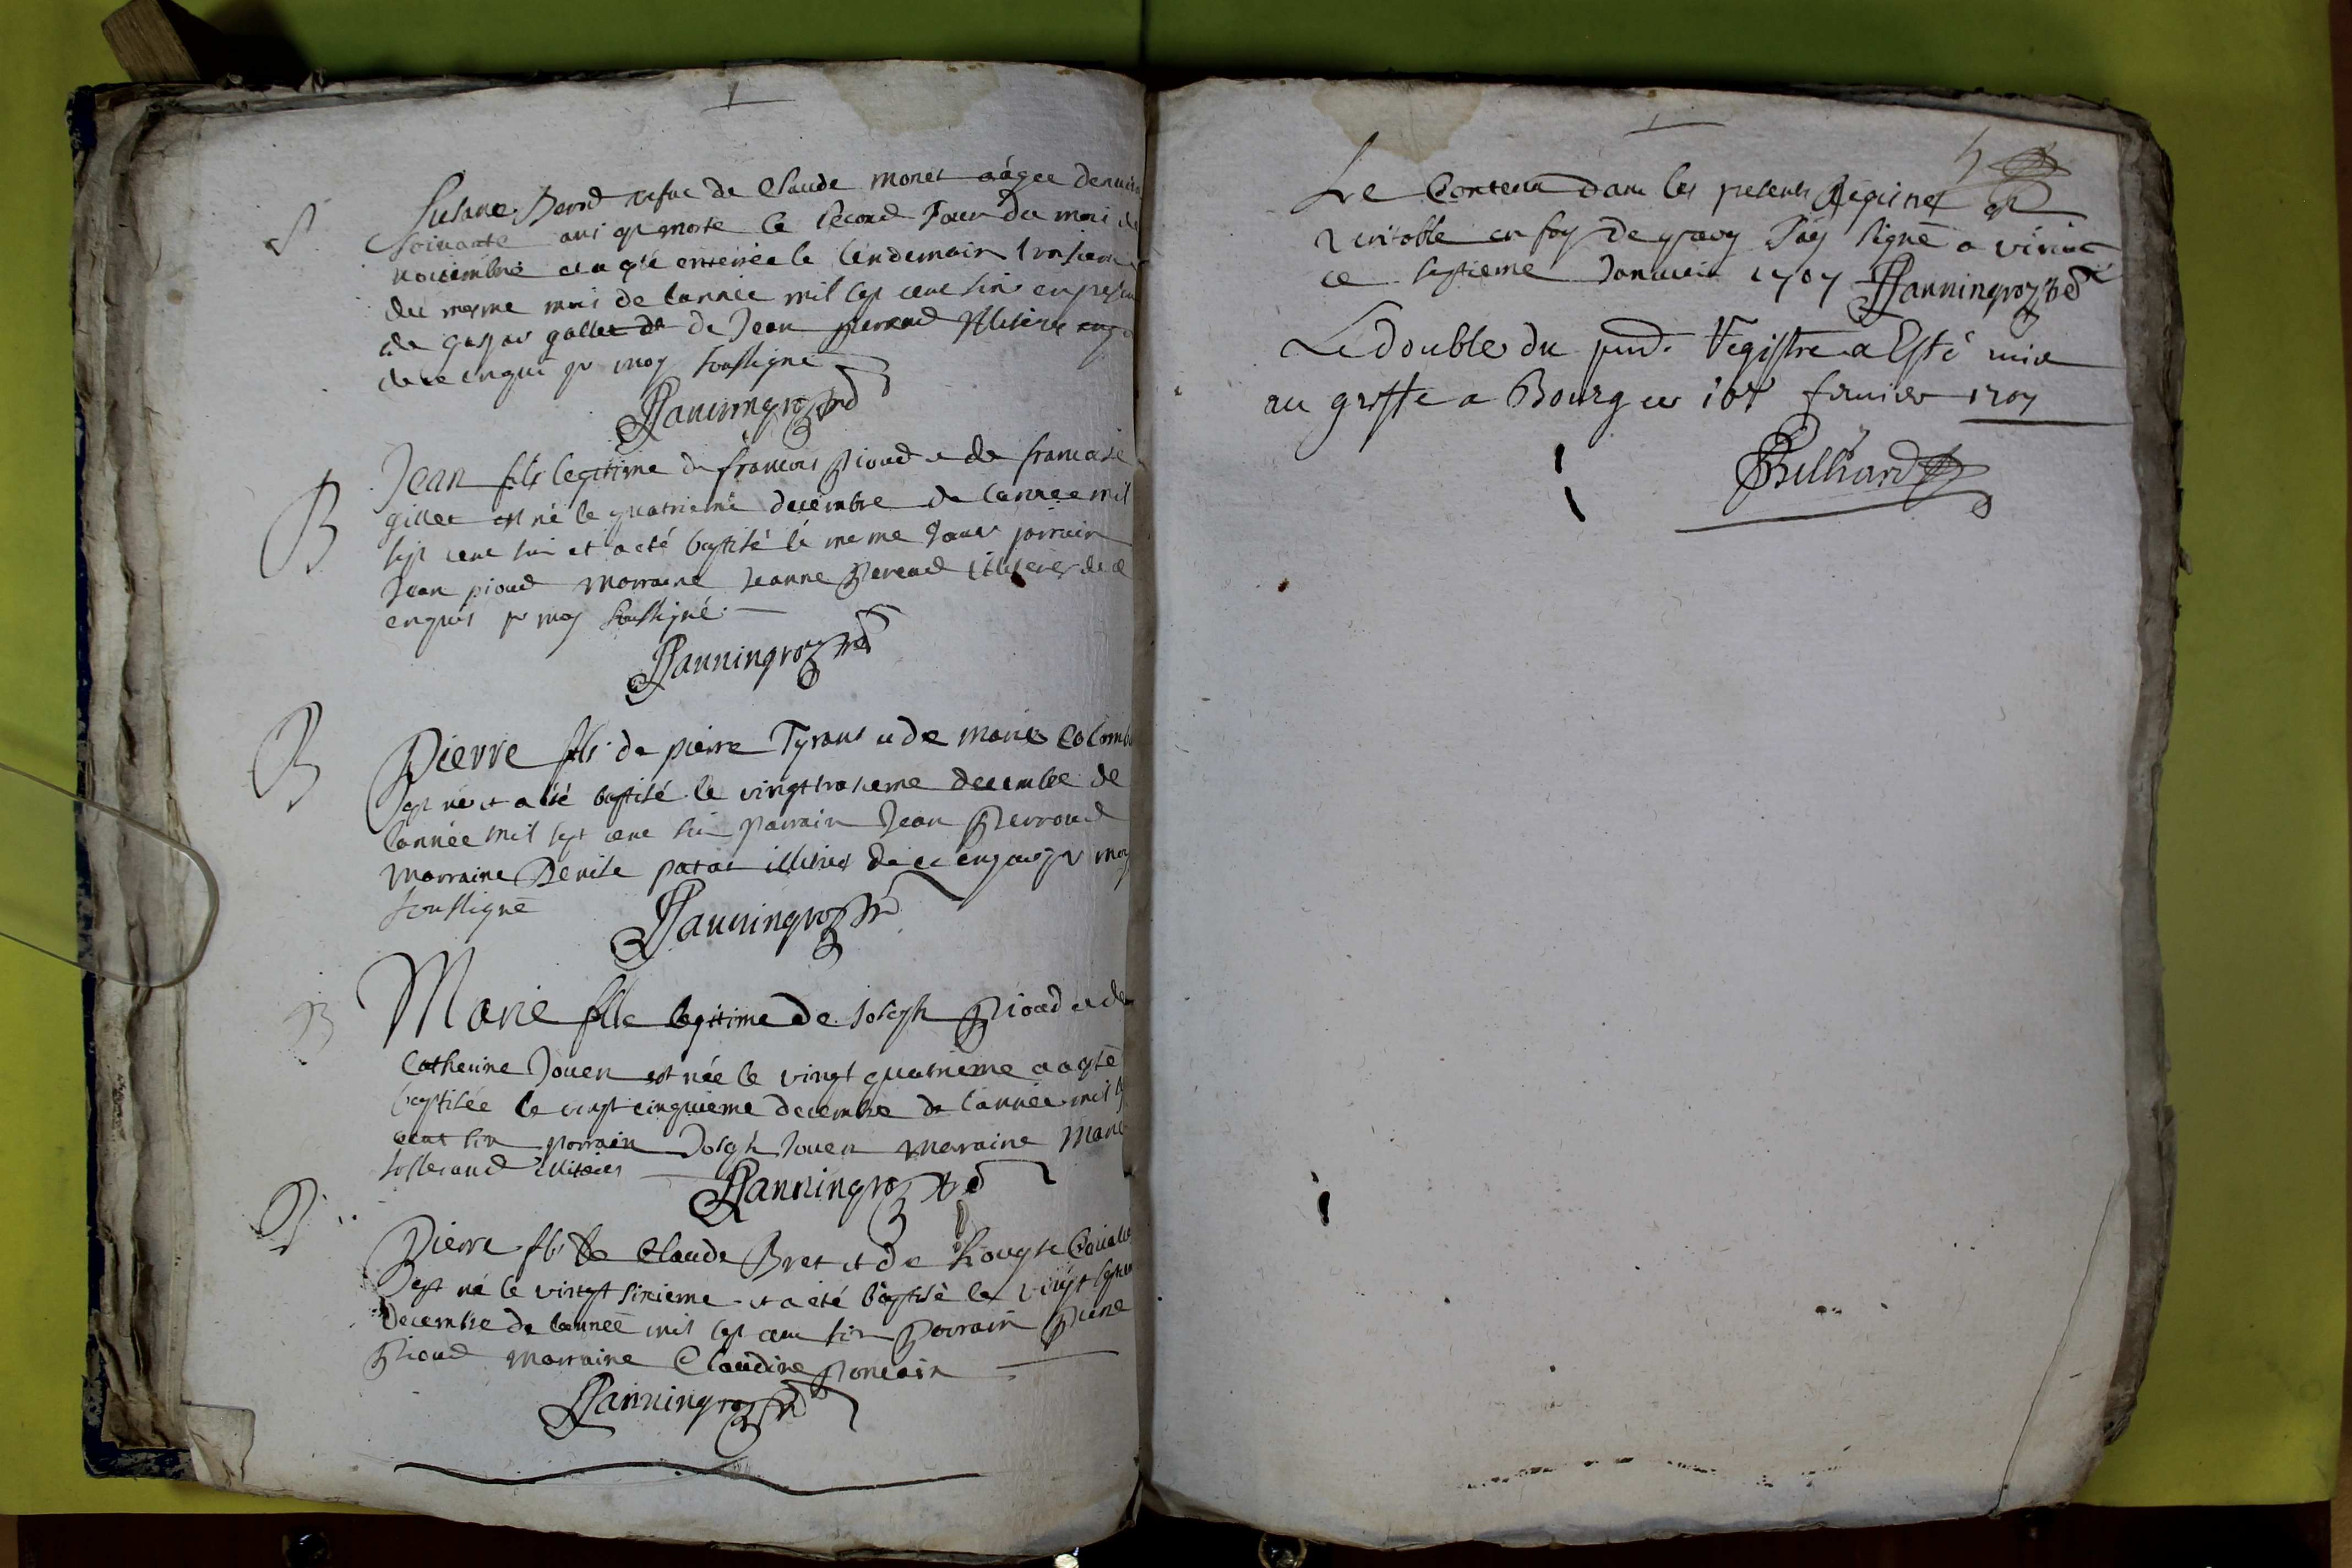 S
Susane Berod vefue de Claude monet aâgee denviro
soixante ans est morte le second Jour du moi de
novembre et a esté enterrée le lendemain troisieme
du mesme moi de lannée mil sept cent six en presen
de gaspar gallet de Jean perraud illiterez
de ce enquis par moy soussigné
Jannningroz
B
Jean fils legitime de francois pioud e de francoise
gillet est né le quatrieme decembre de lannee mil
sept cent six et a été baptisé le meme Jour parrain
Jean pioud marraine Jeanne Peraud illiterez de ce
enquis par moy soussigné
Janningroz
B
Pierre fils de pierre Tyrant e de marie Colomb
est né et a été baptisé le vingttroisieme decembre de
lannée mil sept cent six parrain Jean Perraud
marraine Denise illiterez de ce enquis par moy
soussigné
Janningroz
B
Marie fille legitime de Joseph Pioud et de
Catherine Jouen est née le vingt quatrieme a esté
baptisée le vingt cinquieme decembre de lannée mil s
cent six parrain Joseph Jouen marraine Marie
illiterez
Janningroz
B
Pierre fils de Claude Bret et de
est né le vingt sixieme et a été baptisé le vingt septie
decembre de lannée mil sept cent six parrain Pierre
Pioud marraine Claudine Poncoin
Janningroz
Le Contenu dans les presents Regitres est
veritable en foy de quoy Jay signé a viriat
ce septieme Janvier 1707 Janningroz
Le double du pnt. Registre a Esté mis
au greffe a Bourg ce fevrier 1707
Bulliard